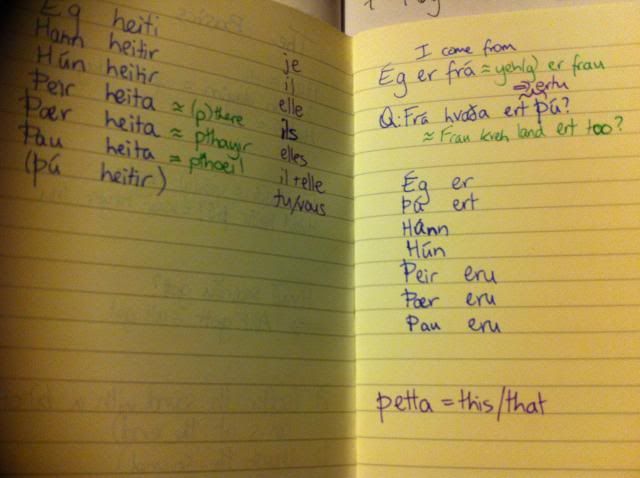 Ég heiti je
Hann heitir il
Hún heitir elle
Þeir heita ≈ (p)there ils
Þær heita ≈ pthayir elles
Þau heita ≈ pthoei il+elle
(þú heitir) tu/vous
I come from
Ég er frá ≈ yehg) er frau
⇒ ertu
Q: Frá hvaða ert þú?
≈ Frau kveh land ert too?
Ég er
Þú ert
Hánn
Hún
Þeir eru
Þær eru
Þau eru
þetta = this/that